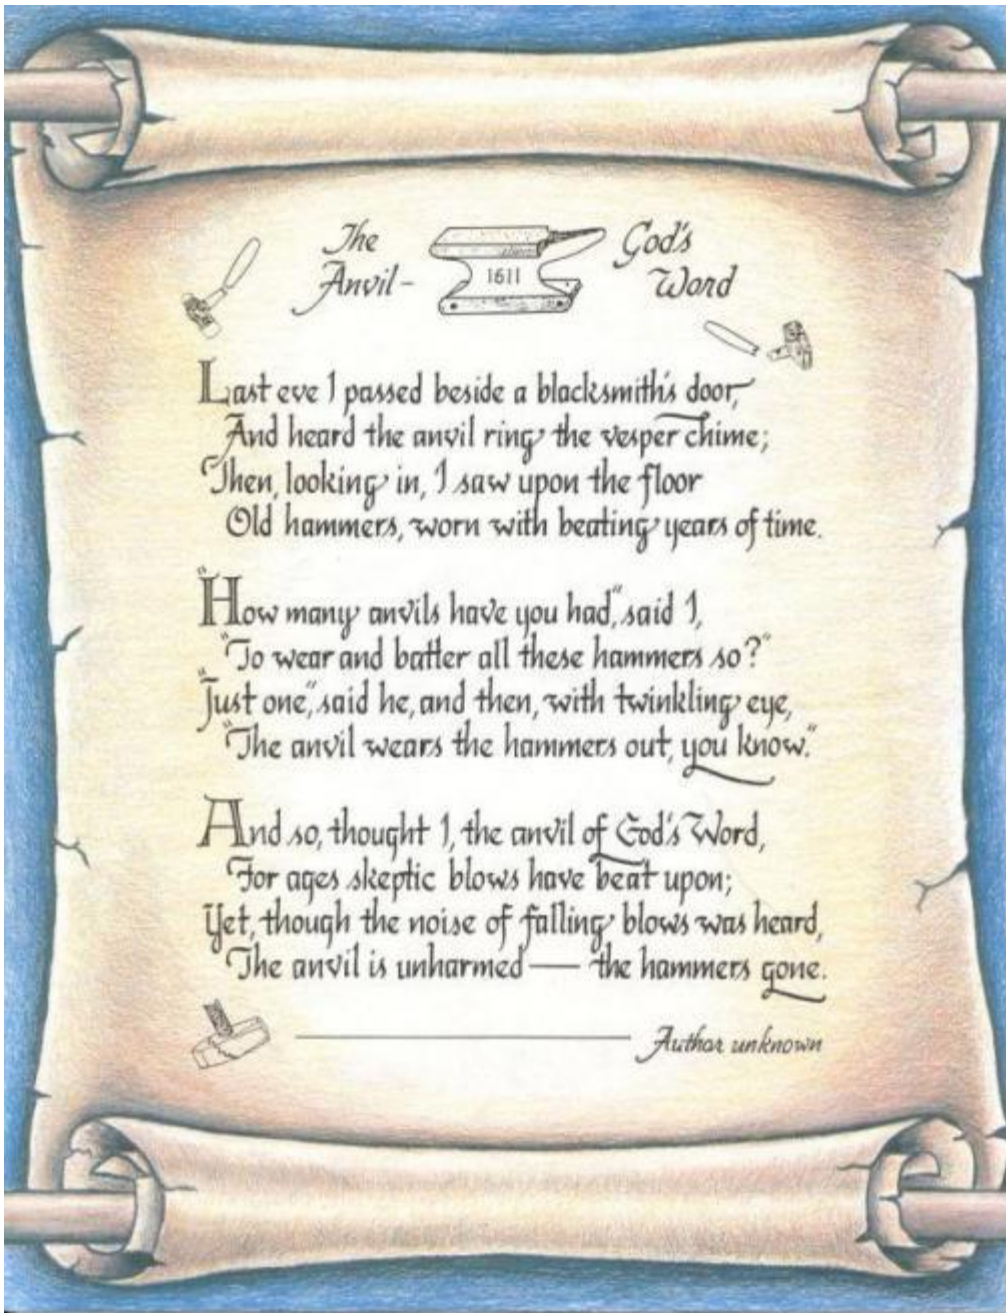 The
Anvil-
1611
God's
Word
Last eve I passed beside a blacksmith's door,
And heard the anvil ring the vesper chime;
Then, looking in, I saw upon the floor
Old hammers, worn with beating years of time.
"How many anvils have you had," said I,
"To wear and batter all these hammers so?"
"Just one," said he, and then, with twinkling eye,
"The anvil wears the hammers out, you know."
And so, thought I, the anvil of God's Word,
For ages skeptic blows have beat upon;
Yet, though the noise of falling blows was heard,
The anvil is unharmed — the hammers gone.
Author unknown